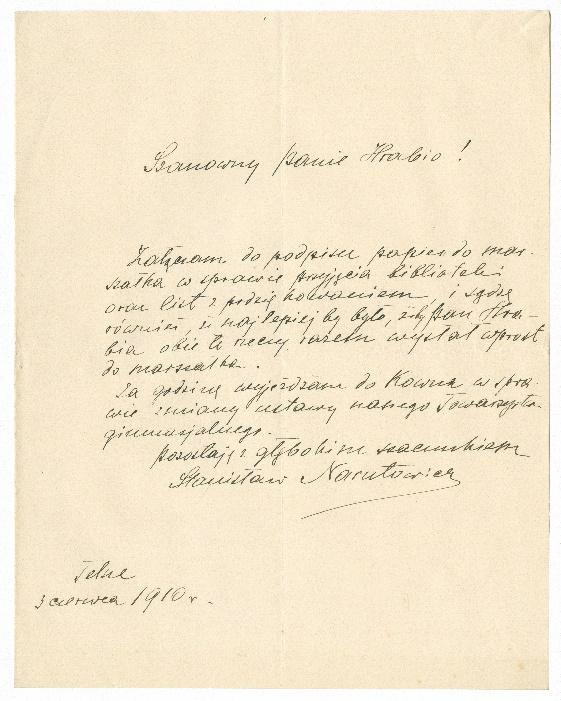 Szanowny Panie Hrabio!
Załączam do podpisu papier do mar-
szałka w sprawie przyjęcia biblioteki
oraz list z podziękowaniem i sądzę
również, że najlepiej by było, żeby Pan Hra-
bia obie te rzeczy razem wysłał wprost
do marszałka.
Za godzinę wyjeżdżam do Kowna w spra-
wie zmiany ustawy naszego Towarzystwa
gimnazjalnego.
Pozostaję z głębokim szacunkiem
Stanisław Narutowicz
Telsze
3 czerwca 1910 r.